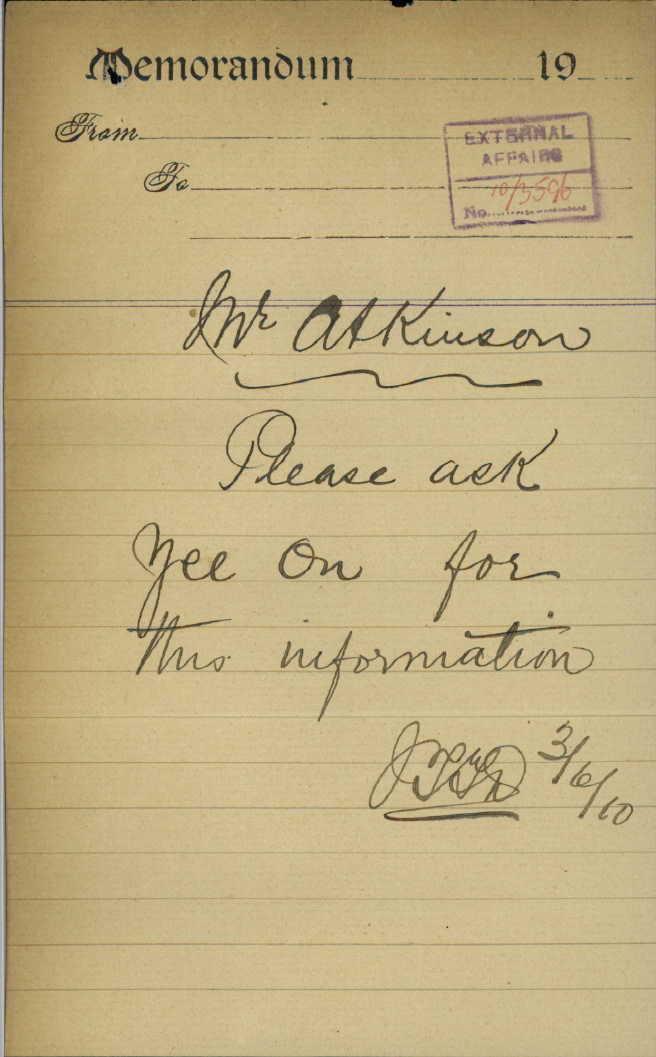 Memorandum 19
From
To
EXTERNAL
AFFAIRS
No. 10/3596
Mr Atkinson
Please ask
Yee On for
this information
3/6/10